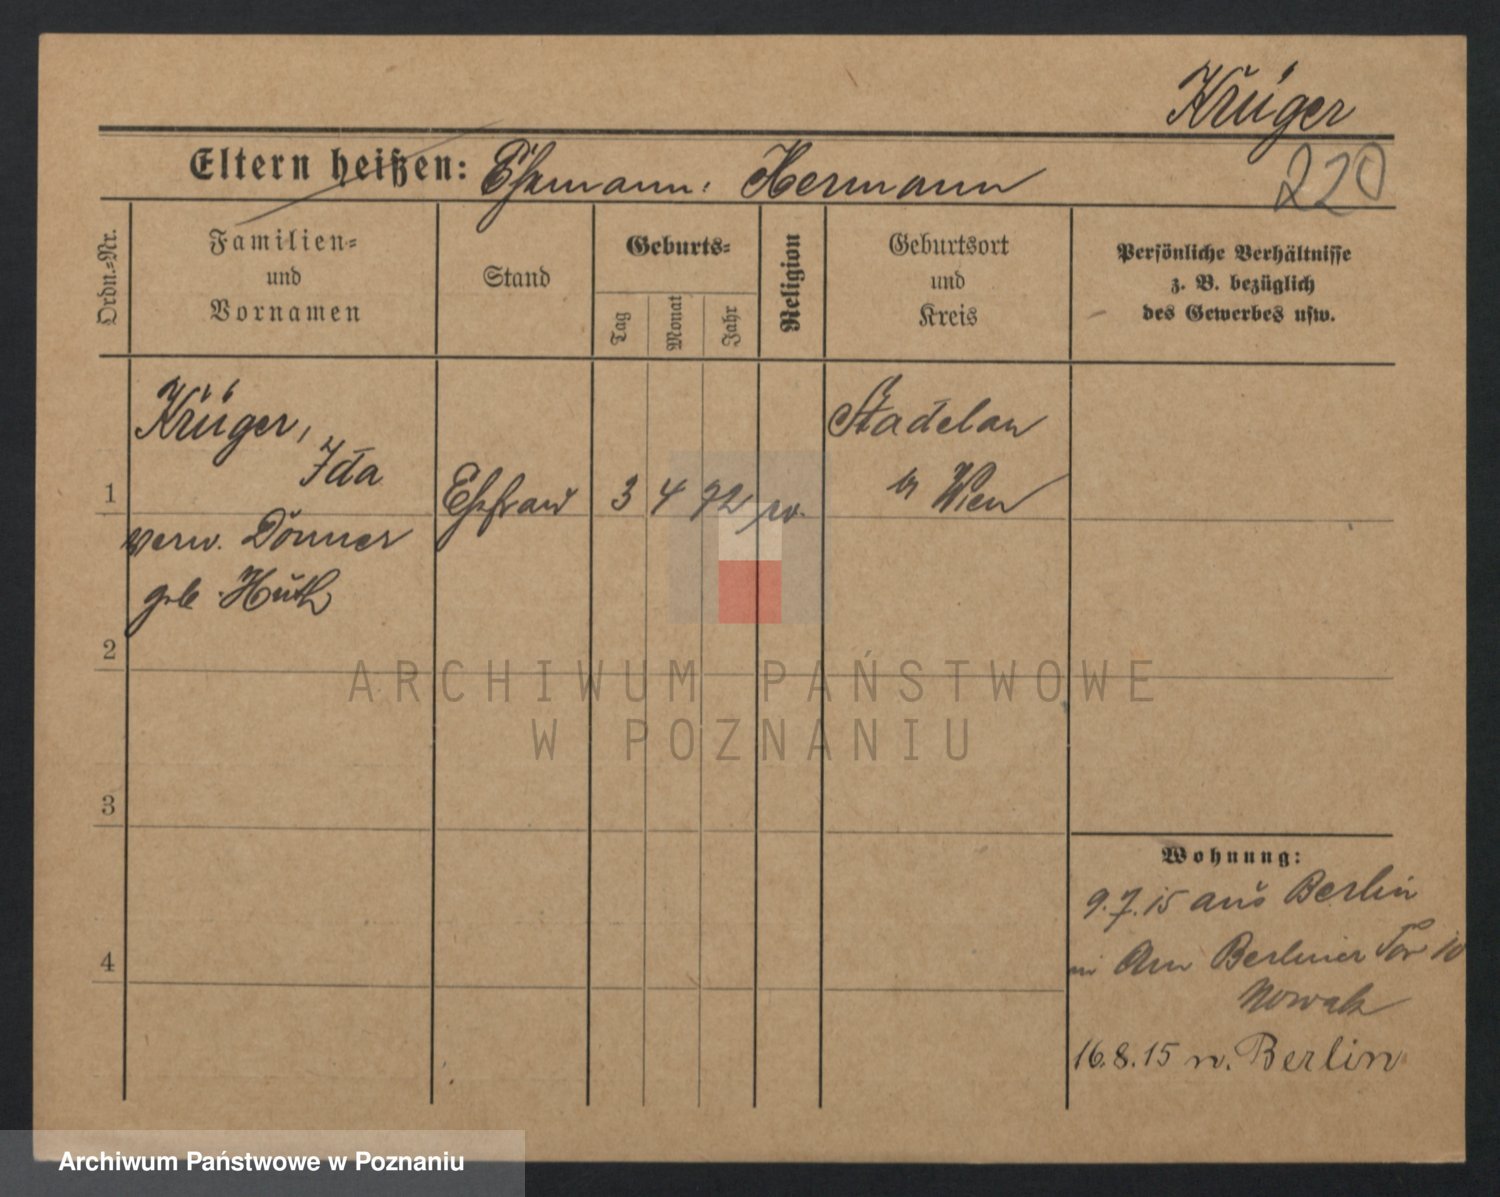 Krüger
Eltern heißen: Ehemann: Hermann 220
Ordn.-Nr.
Familien-
und
Vornamen
Stand
Geburts-
Tag
Monat
Jahr
Religion
Geburtsort
und
Kreis
Persönliche Verhältnisse
z. B. bezüglich
des Gewerbes usw.
Krüger,
Ida
1 Ehefrau 3 4 72
verw. Donner
geb. Huth
Stadelau
b Wien
2
3
4
Wohnung:
9.7.15 aus Berlin
Am Berliner Tor 10
Nowak
16.8.15 n. Berlin
ARCHIWUM PAŃSTWOWE
W POZNANIU
Archiwum Państwowe w Poznaniu